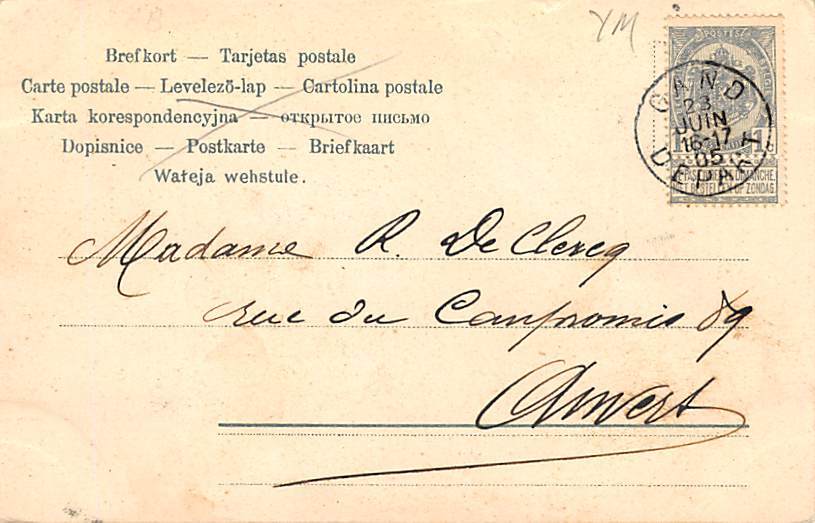 YM
Brefkort — Tarjetas postale
Carte postale — Levelező-lap — Cartolina postale
Karta korespondencyjna — открытое письмо
Dopisnice — Postkarte — Briefkaart
Wałeja wehstule.
POSTES
GAND
23
JUIN
16-17
05
DEPART
1 1c
NE PAS LIVRER LE DIMANCHE.
NIET BESTELLEN OP ZONDAG
Madame R. De Clercq
rue du Compromis 89
Anvers